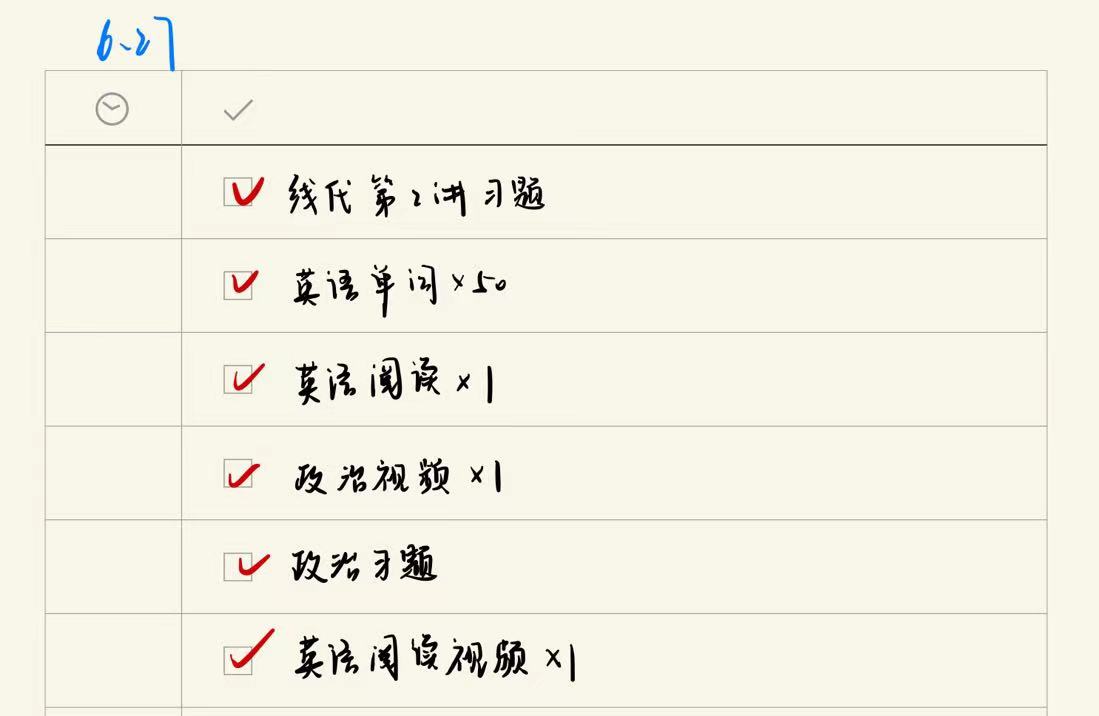 6.27
线代第2讲习题
英语单词×50
英语阅读×1
政治视频×1
政治习题
英语阅读视频×1